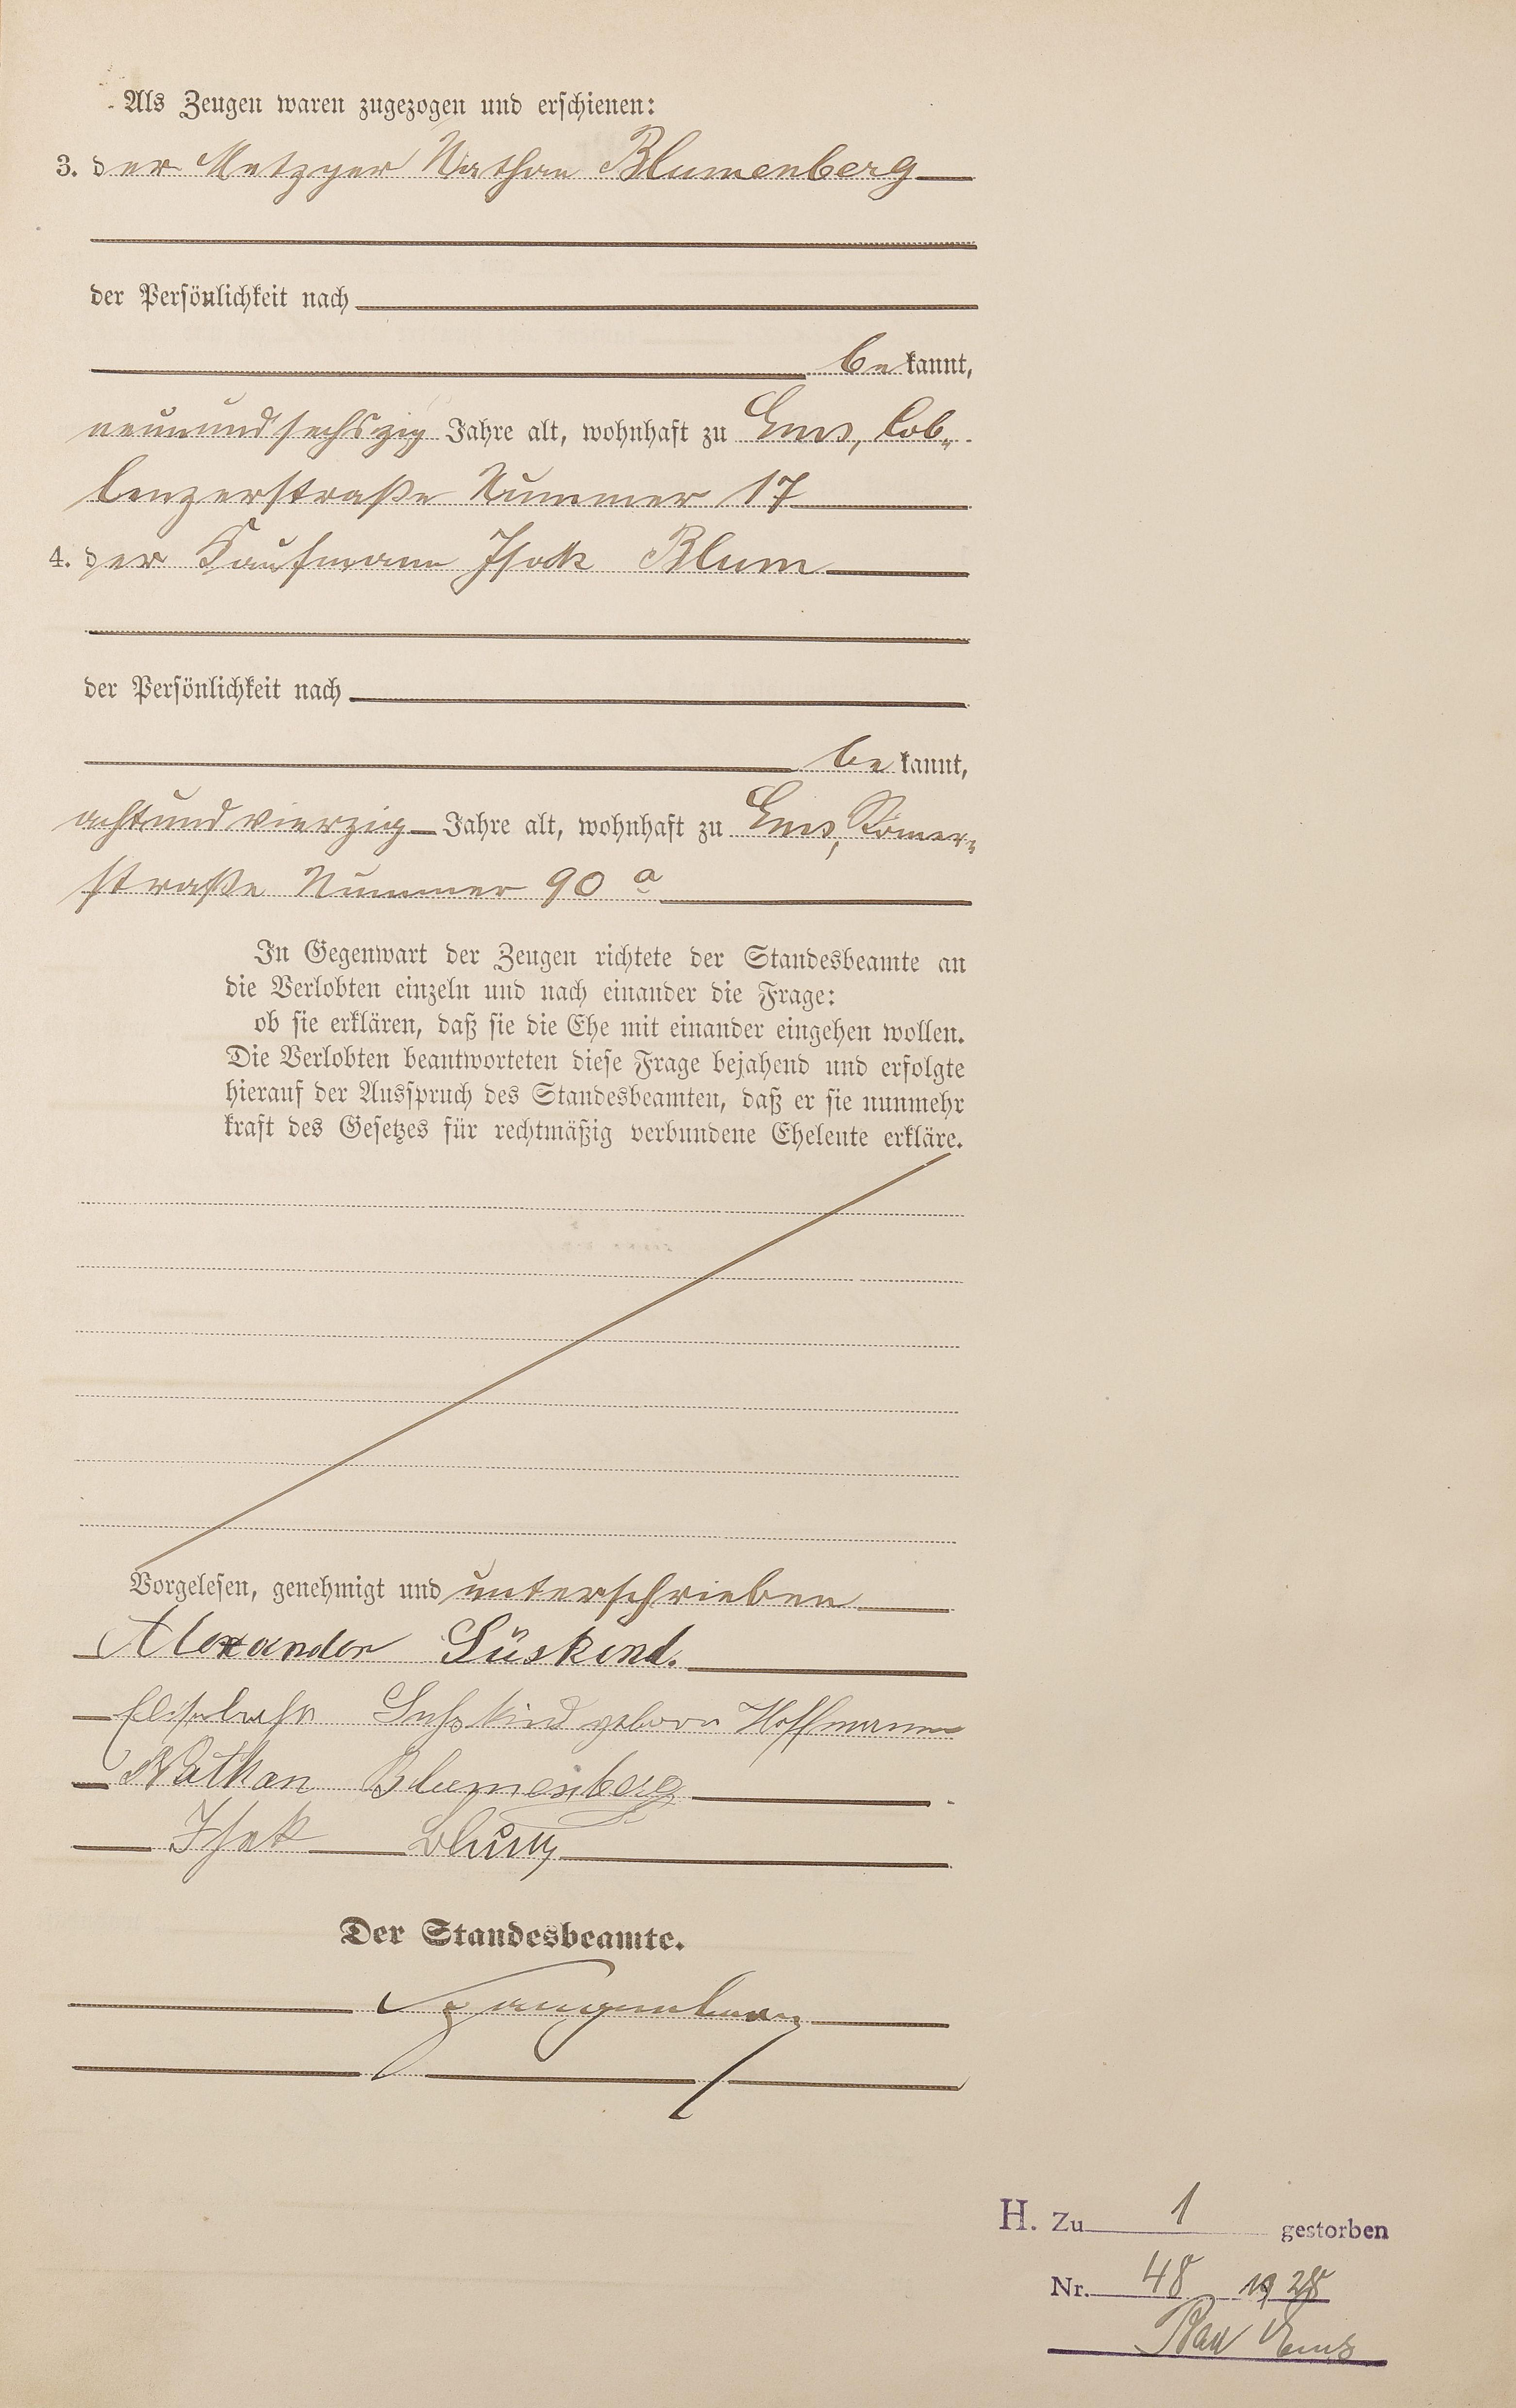 Als Zeugen waren zugezogen und erschienen:
3. der Metzger Nathan Blumenberg
der Persönlichkeit nach
be kannt,
neunundsechszig Jahre alt, wohnhaft zu Ems, Cob-
lenzerstraße Nummer 17
4. der Kaufmann Isak Blum
der Persönlichkeit nach
be kannt,
achtundvierzig Jahre alt, wohnhaft zu Ems, Römer-
straße Nummer 90 a
In Gegenwart der Zeugen richtete der Standesbeamte an
die Verlobten einzeln und nach einander die Frage:
ob sie erklären, daß sie die Ehe mit einander eingehen wollen.
Die Verlobten beantworteten diese Frage bejahend und erfolgte
hierauf der Ausspruch des Standesbeamten, daß er sie nunmehr
kraft des Gesetzes für rechtmäßig verbundene Eheleute erkläre.
Vorgelesen, genehmigt und unterschrieben
Alexander Süskind.
Elisabeth Süßkind geborn Hoffmann
Nathan Blumenberg
Isak Blum
Der Standesbeamte.
H. Zu 1 gestorben
Nr. 48 1928
Bad Ems